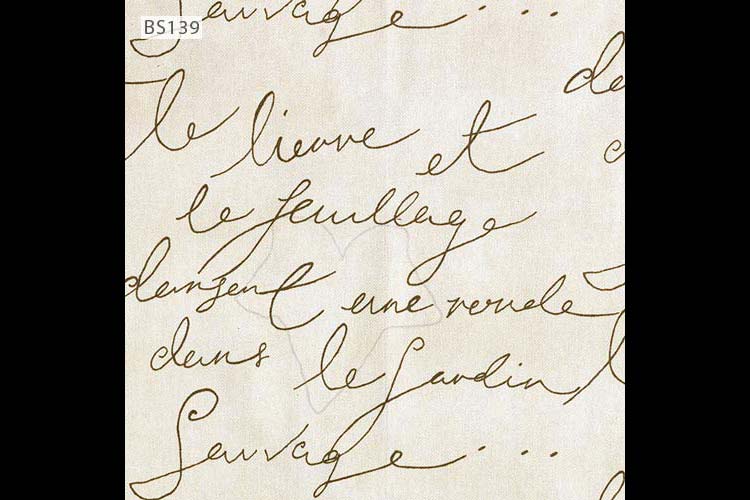 Sauvage ...
BS139
le lierre et
le feuillage
dansent une ronde
dans le Jardin
Sauvage ...